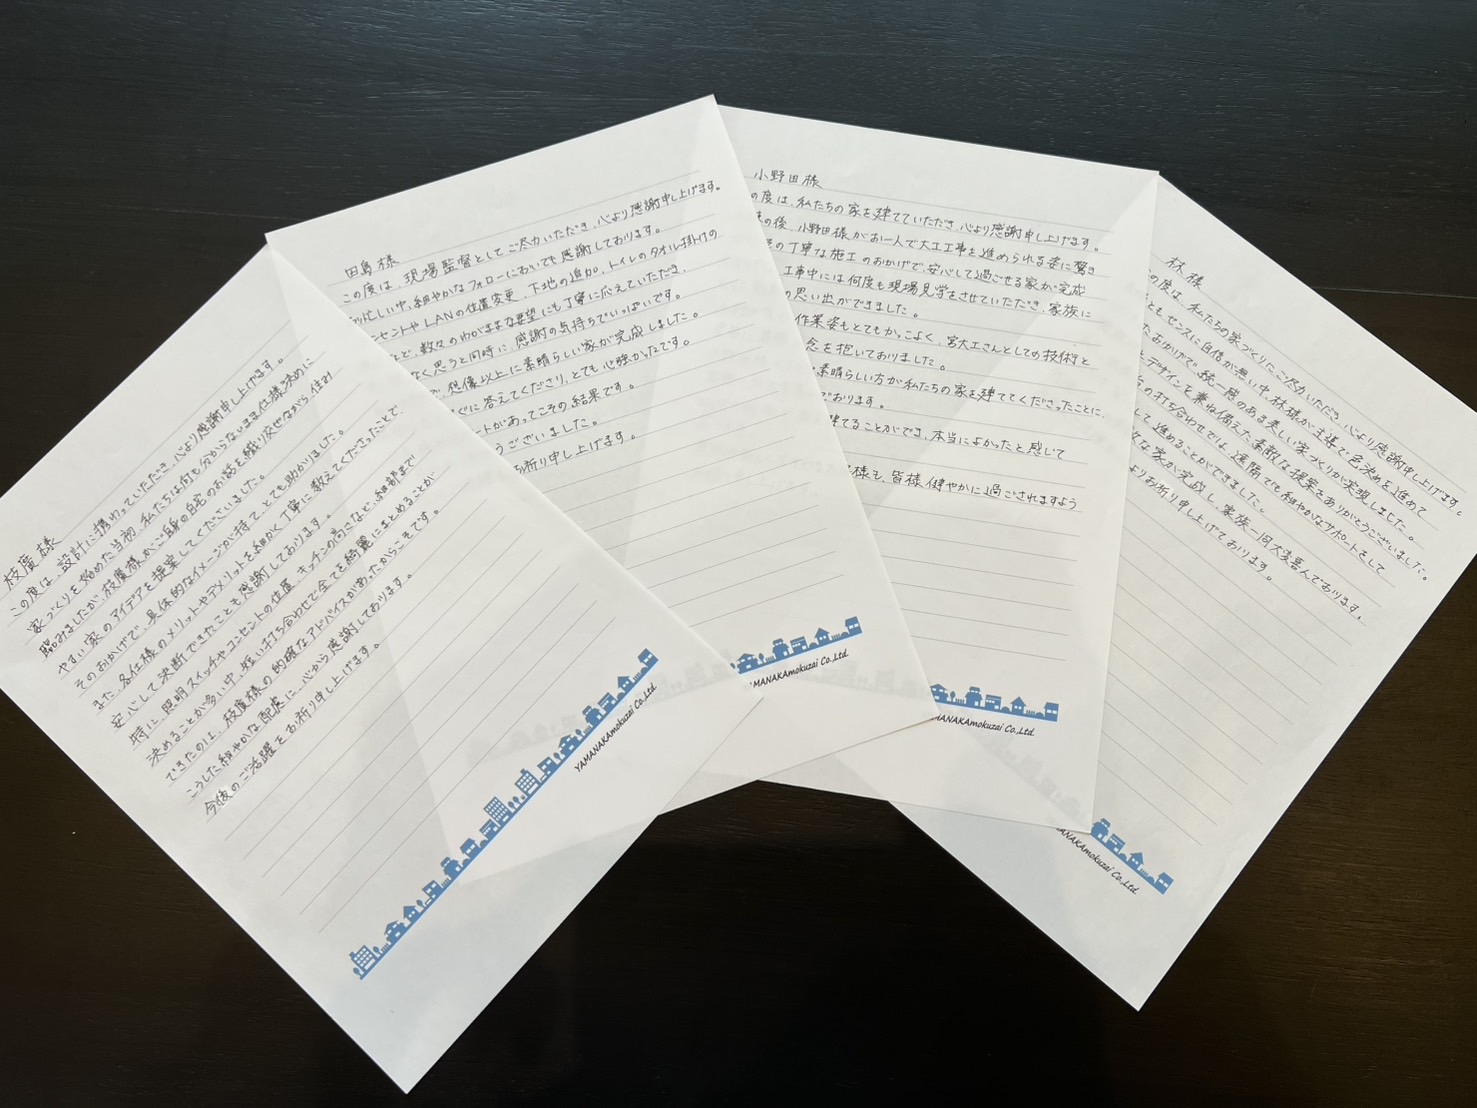 枝廣様
この度は、設計に携わっていただき、心より感謝申し上げます。
家づくりを始めた当初、私たちは何も分からないまま仕様決めに
臨みましたが、枝廣様がご自身の自宅のお話を織り交ぜながら住み
やすい家のアイデアを提案してくださいました。
そのおかげで、具体的なイメージが持て、とても助かりました。
また、各仕様のメリットやデメリットを細かく丁寧に教えてくださったことで、
安心して決断できたことも感謝しております。
特に、照明スイッチやコンセントの位置、キッチンの高さなど、細部まで
決めることが多い中、短い打ち合わせで全てを綺麗にまとめることが
できたのは、枝廣様の的確なアドバイスがあったからこそです。
こうした細やかな配慮に、心から感謝しております。
今後のご活躍をお祈り申し上げます。
YAMANAKAmokuzai Co.,Ltd.
田島様
この度は、現場監督としてご尽力いただき、心より感謝申し上げます。
忙しい中、細やかなフォローにおいても感謝しております。
セントやLANの位置変更、下地の追加、トイレのタオル掛けの
ど、数々のわがままな要望にも丁寧に応えていただき、
なく思うと同時に、感謝の気持ちでいっぱいです。
、想像以上に素晴らしい家が完成しました。
ぐに答えてくださり、とても心強かったです。
ートがあってこその結果です。
うございました。
お祈り申し上げます。
YAMANAKAmokuzai Co.,Ltd.
小野田様
の度は、私たちの家を建てていただき、心より感謝申し上げます。
の後、小野田様がお一人で大工工事を進められる姿に驚き
の丁寧な施工のおかげで、安心して過ごせる家が完成
工事中には何度も現場見学をさせていただき、家族に
の思い出ができました。
作業姿もとてもかっこよく、宮大工さんとしての技術と
念を抱いておりました。
素晴らしい方が私たちの家を建ててくださったことに、
ております。
建てることができ、本当によかったと感じて
様も、皆様健やかに過ごされますよう
YAMANAKAmokuzai Co.,Ltd.
林様
の度は、私たちの家づくりにご尽力いただき、心より感謝申し上げます。
ともセンスに自信が無い中、林様が主導で色決めを進めて
たおかげで、統一感のある美しい家づくりが実現しました。
とデザインを兼ね備えた素敵な提案をありがとうございました。
の打ち合わせでは、遠隔でも細やかなサポートをして
して進めることができました。
な家が完成し、家族一同大変喜んでおります。
よりお祈り申し上げております。
YAMANAKAmokuzai Co.,Ltd.